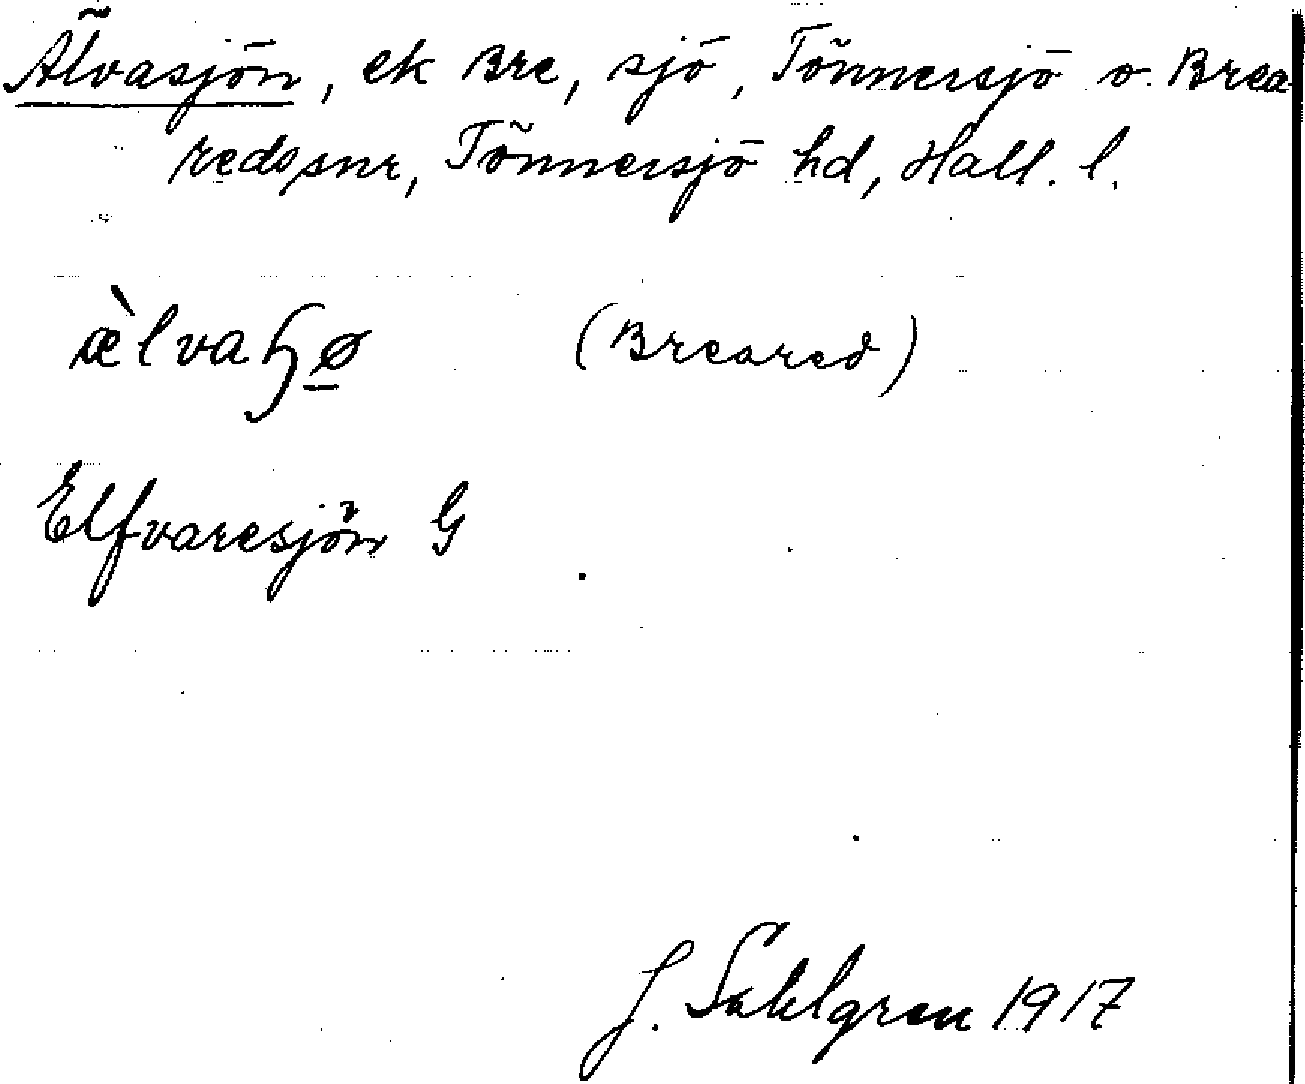 Älvasjön, ek Bre, sjö, Tönnersjö o. Brea
redssnr, Tönnersjö hd, Hall. l.
æ̀lvaɧø̠ (Breared)
Elfvaresjön G
J. Sahlgren 1917